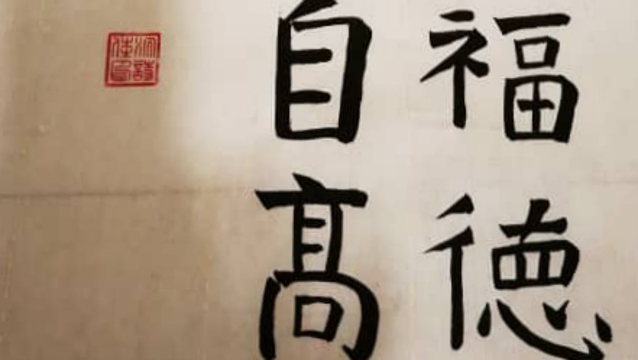 福德
自高